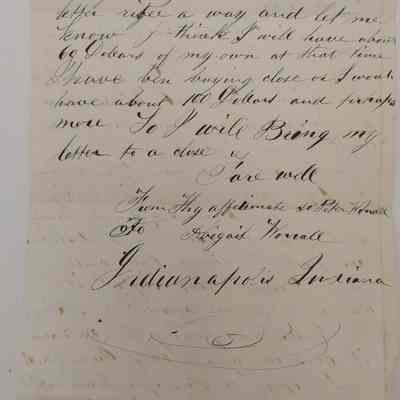 better rite a way and let me
know I think I will have about
60 Dolars of my own at that time
I have ben buying close or I would
have about 100 Dollars and perhaps
more So I will Bring my
letter to a close
Fare well
From Thy affectionate so Peter Worrall
To Abigail Worrall
Indianapolis Indiana